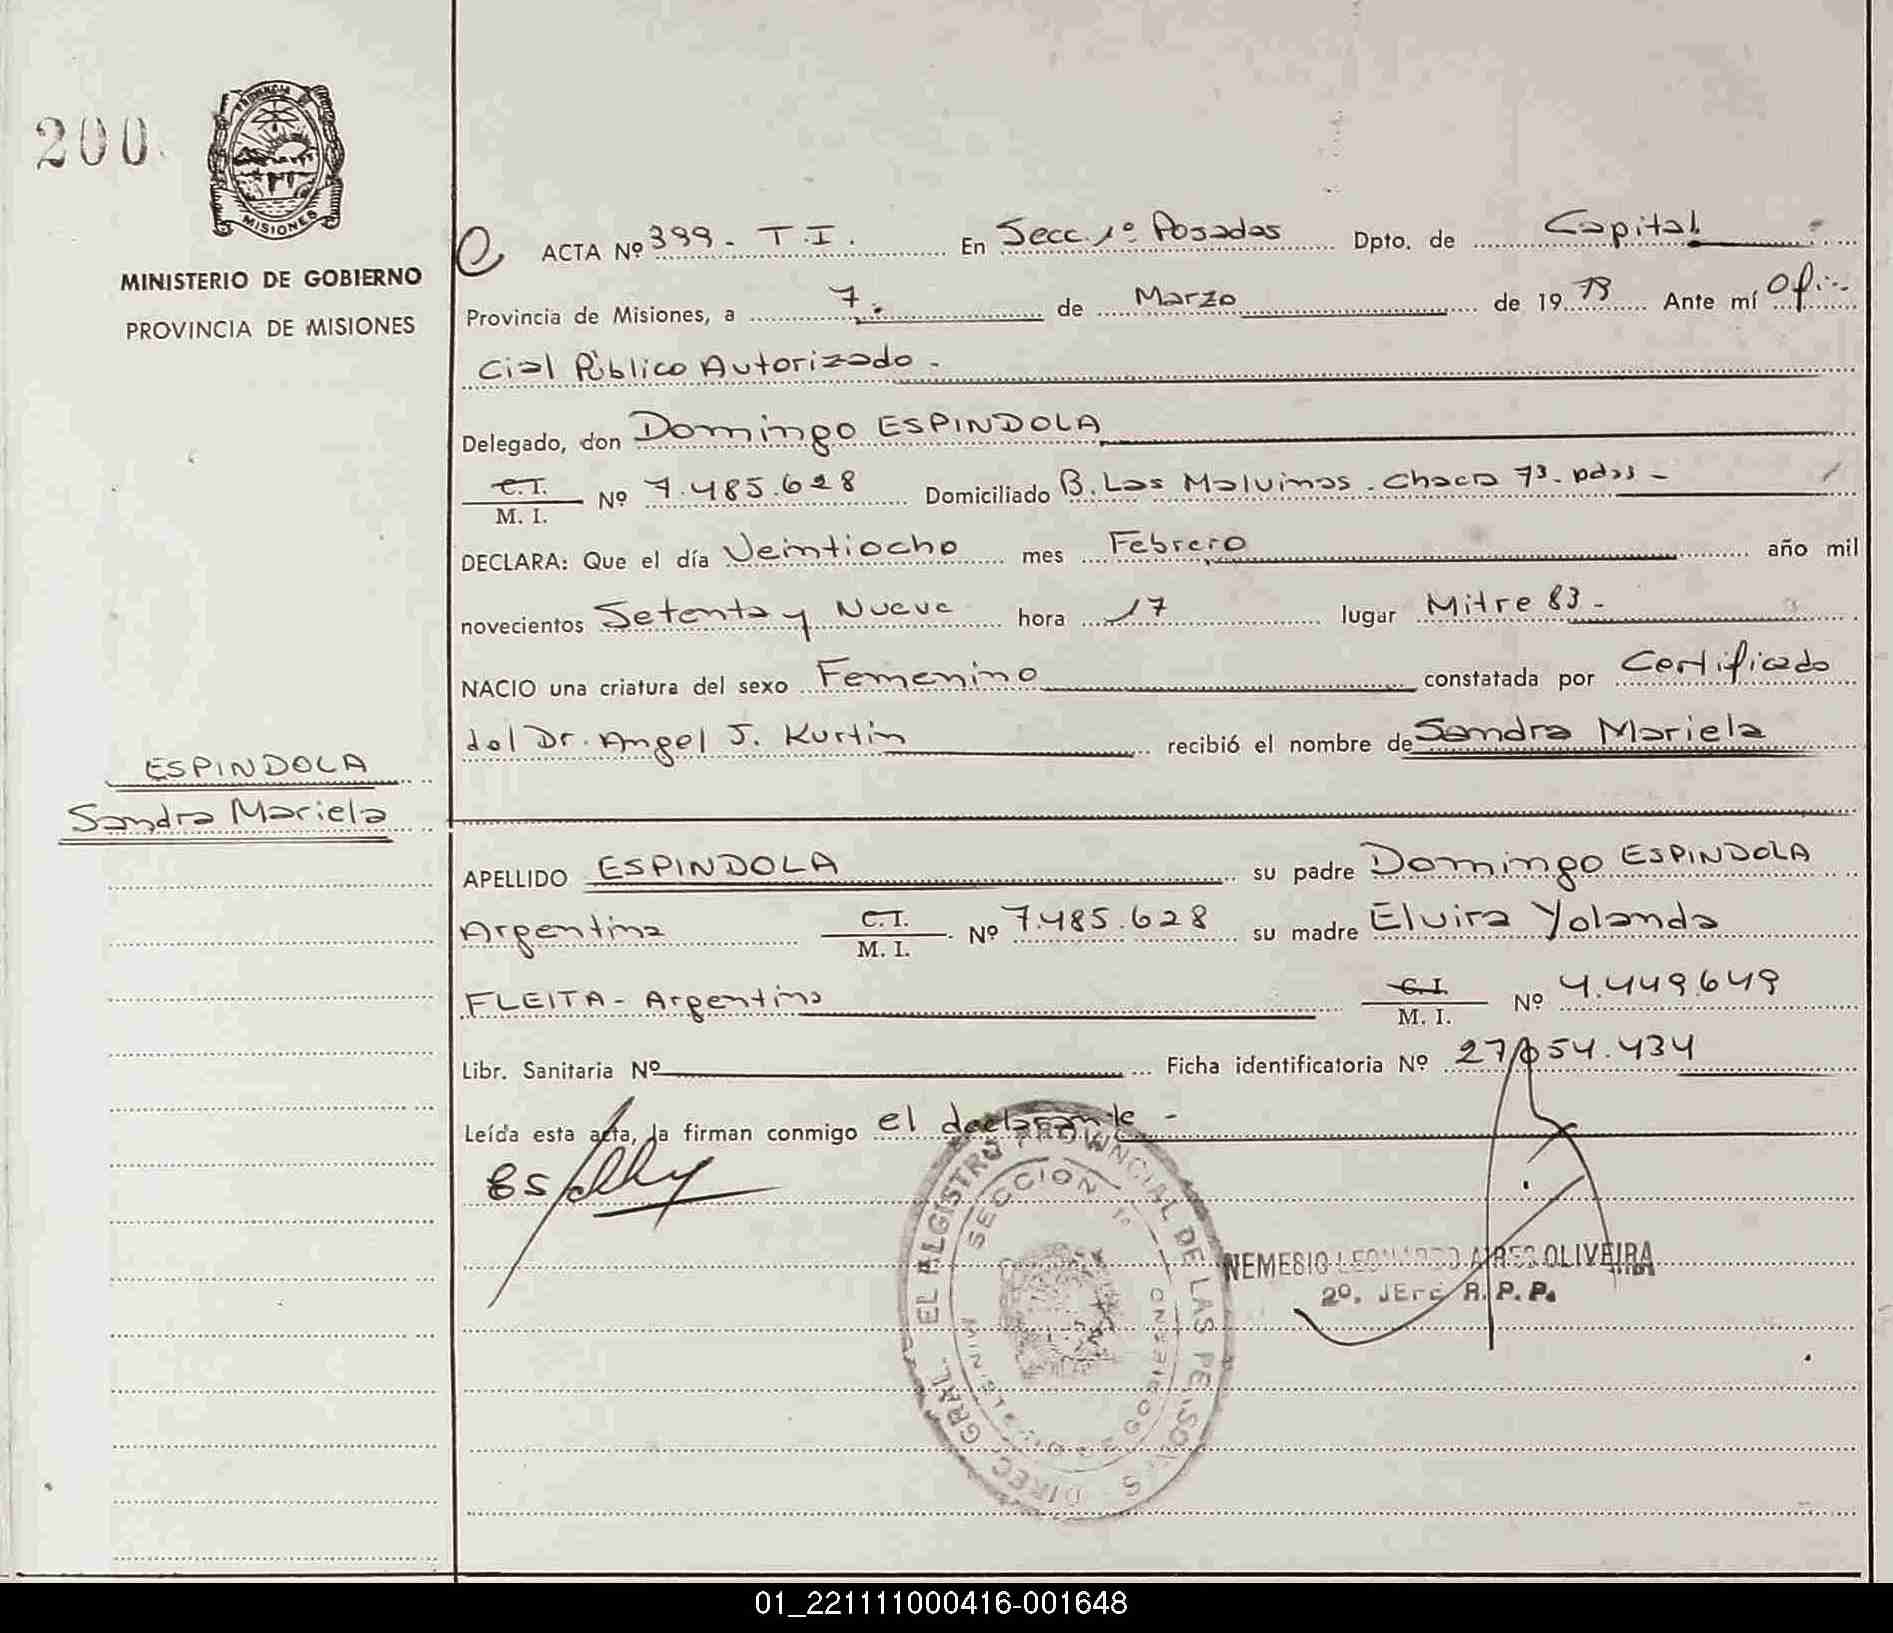 200
PROVINCIA DE
MISIONES
MINISTERIO DE GOBIERNO
PROVINCIA DE MISIONES
ACTA Nº 399 - T.I. En Secc. 1º Posadas Dpto. de Capital
Provincia de Misiones, a 7. de Marzo de 19 79 Ante mí Ofi-
cial Público Autorizado -
Delegado, don Domingo ESPINDOLA
C.I.
M. I. Nº 7.485.628 Domiciliado B. Las Malvinas. Chacra 73. pdas -
DECLARA: Que el día Veintiocho mes Febrero año mil
novecientos Setenta y Nueve hora 17 lugar Mitre 83 -
NACIO una criatura del sexo Femenino constatada por Certificado
del Dr. Angel J. Kurtin recibió el nombre de Sandra Mariela
ESPINDOLA
Sandra Mariela
APELLIDO ESPINDOLA su padre Domingo ESPINDOLA
Argentina C.I.
M. I. Nº 7.485.628 su madre Elvira Yolanda
FLEITA - Argentina C.I.
M. I. Nº 4.449.649
Libr. Sanitaria Nº Ficha identificatoria Nº 27.054.434
Leída esta acta, la firman conmigo el declarante -
DIREC. GRAL. REGISTRO PROVINCIAL DE LAS PERSONAS
SECCION 1º
NEMESIO LEONARDO AIRES OLIVEIRA
2º. JEFE R. P. P.
01_221111000416-001648